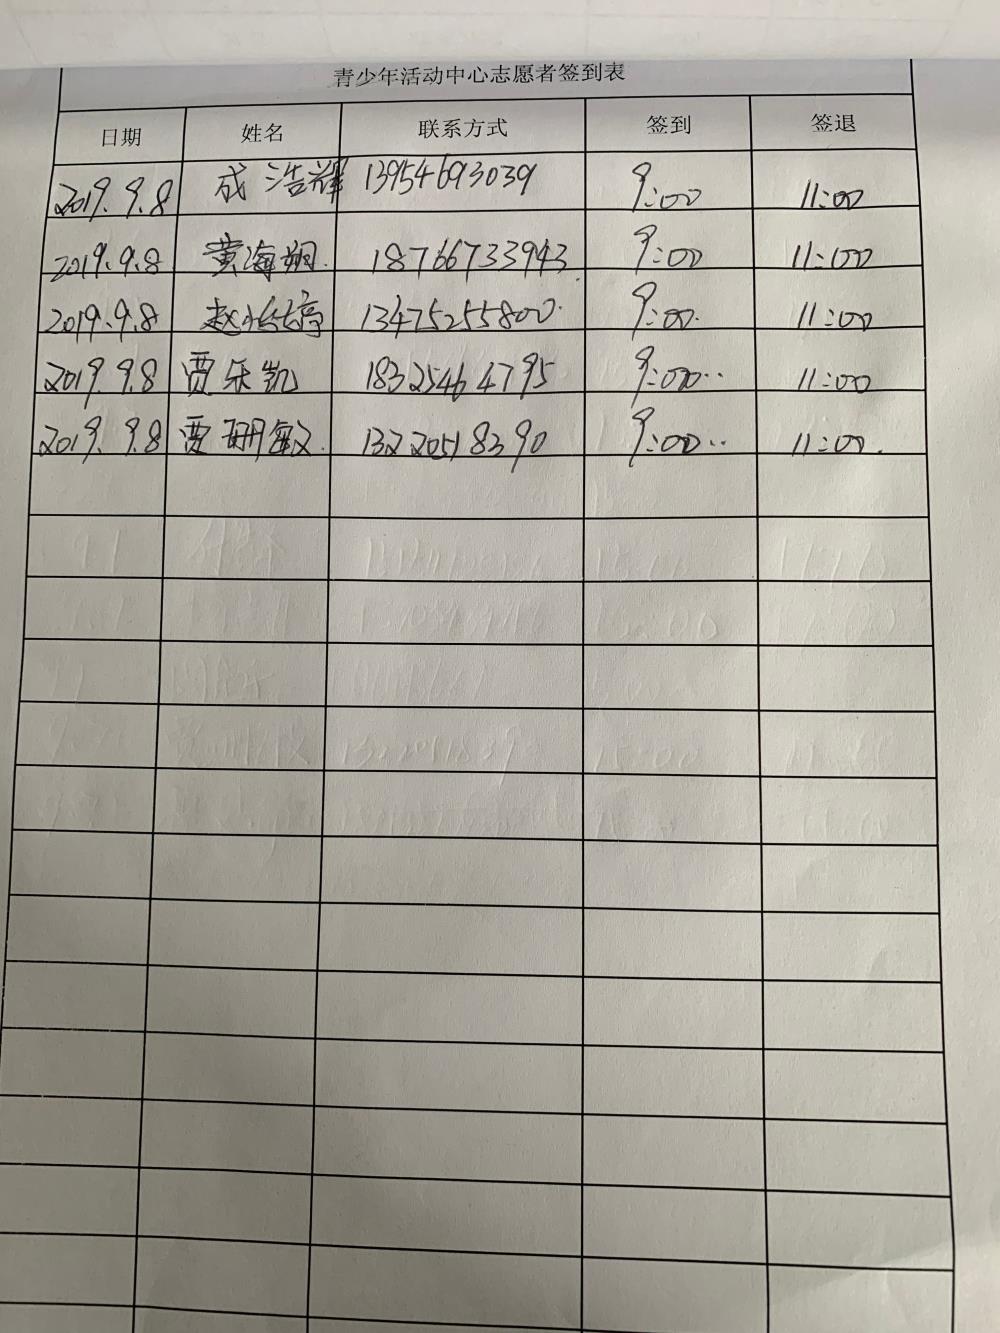 青少年活动中心志愿者签到表
日期 姓名 联系方式 签到 签退
2019.9.8 成浩辉 13954693039 9:00 11:00
2019.9.8 黄海翔. 18766733943 9:00 11:00
2019.9.8 赵 13475255800. 9:00. 11:00
2019.9.8 贾乐凯 18325464795 9:00.. 11:00
2019.9.8 贾珊敏. 13220518390 9:00.. 11:00.